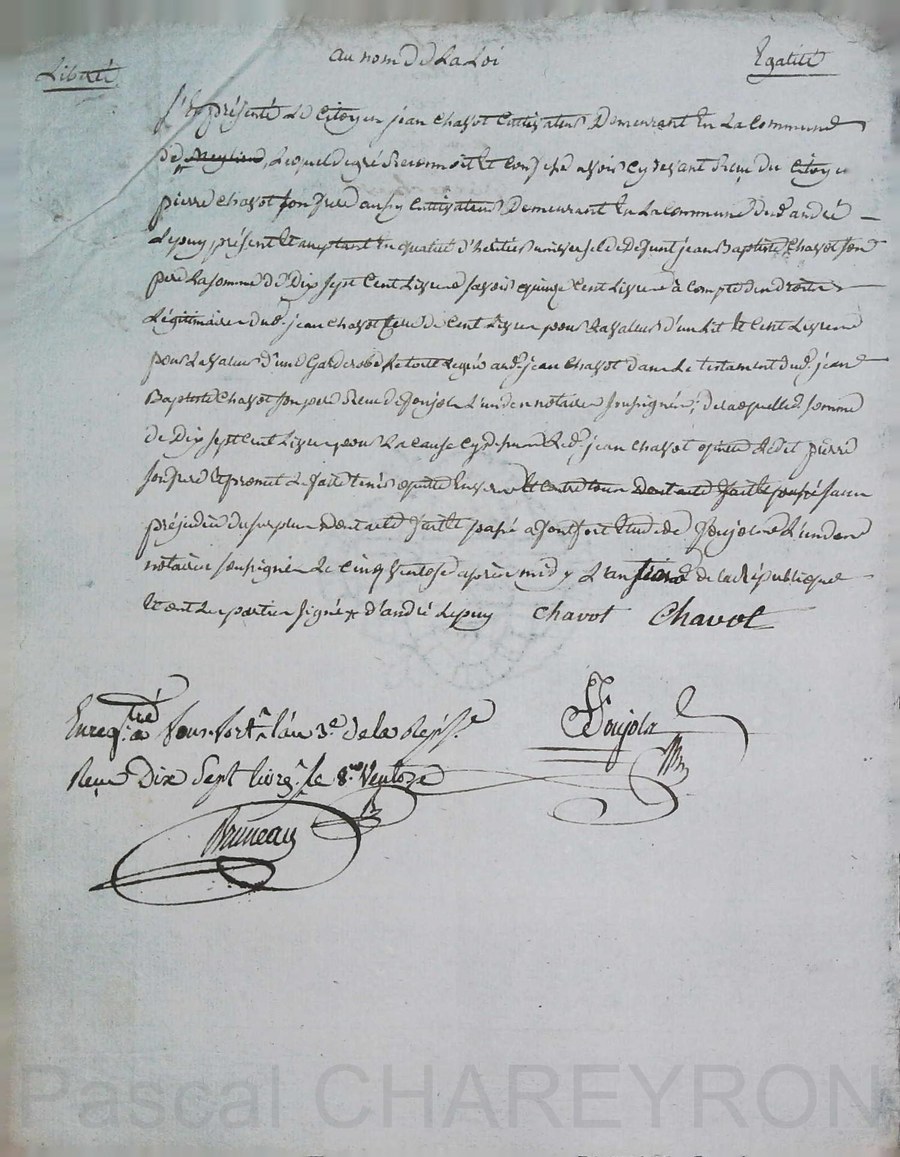 Liberté au nom de La Loi Egalité
S'est présenté Le Citoyen jean Chavot Cultivateur Demeurant En La Commune
de Lequel degré Reconnoit et Confesse avoir Cydevant Reçu du Citoyen
pierre Chavot son frere aussy Cultivateur Demeurant En La Commune dud. andré
Lepuy, présent Et aceptant En qualité d'heritier universel de Defunt jean Baptiste Chavot son
pere La somme de Dix Sept Cent Livres savoir quinze Cent Livres à Compte des Droits
Légitimaires dud. jean Chavot Cent Livres pour La valeur d'un Lit Et Cent Livres
pour La valeur d'une Garderobe Le tout Legué aud. jean Chavot dans Le testament dud. jean
Baptiste Chavot son pere Reçu de Soujola L'un des notaires soussignés; de Laquelle somme
de Dix Sept Cent Livres pour La Cause Cydessus Led. jean Chavot quitte Ledit pierre
son frere Et promet Le faire tenir quitte Envers Et Contre tous Dont acte fait Et passé sans
préjudice du surplus Dont acte fait Et passé a Monfort Etude de Soujola L'un des
notaires soussignés Le Cinq Ventose après midy L'an troisie de la République
Et ont Les parties signé d'andré Lepuy Chavot Chavol
Soujola
Enregtré à Monfort l'an 3e de la Rep.
Reçu Dix Sept livres le 8 Ventose
Bruneau
Pascal CHAREYRON